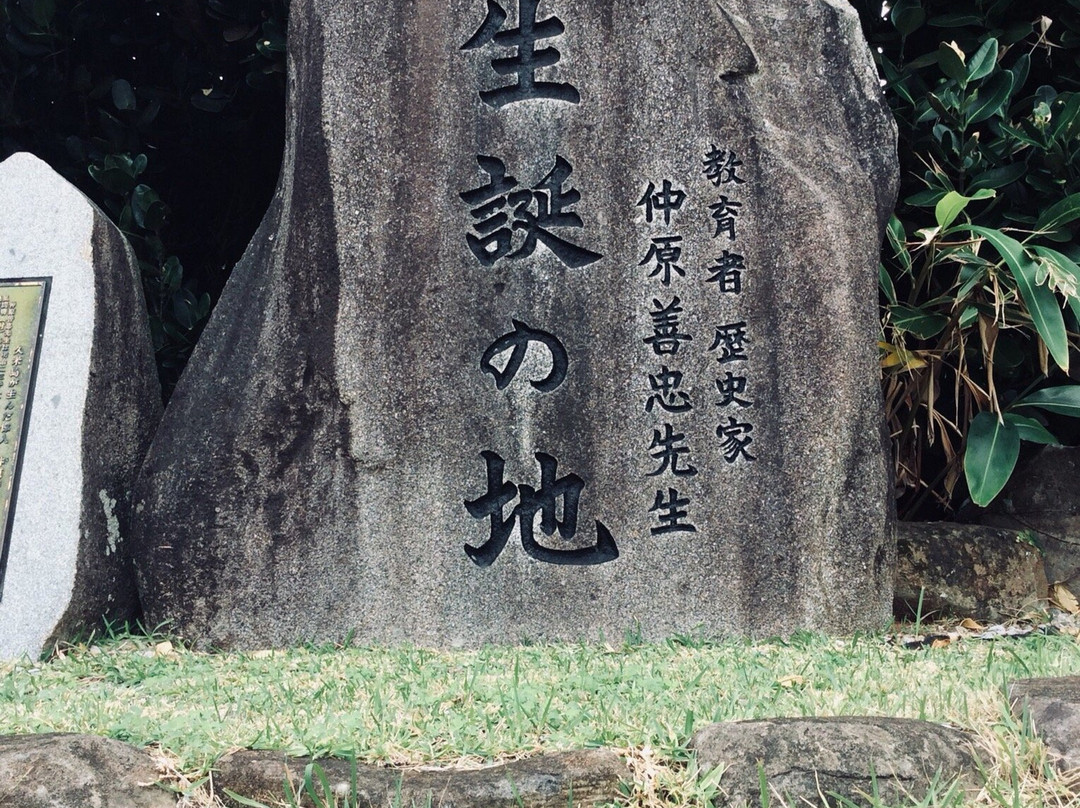 教育者 歴史家
仲原善忠先生
生誕の地